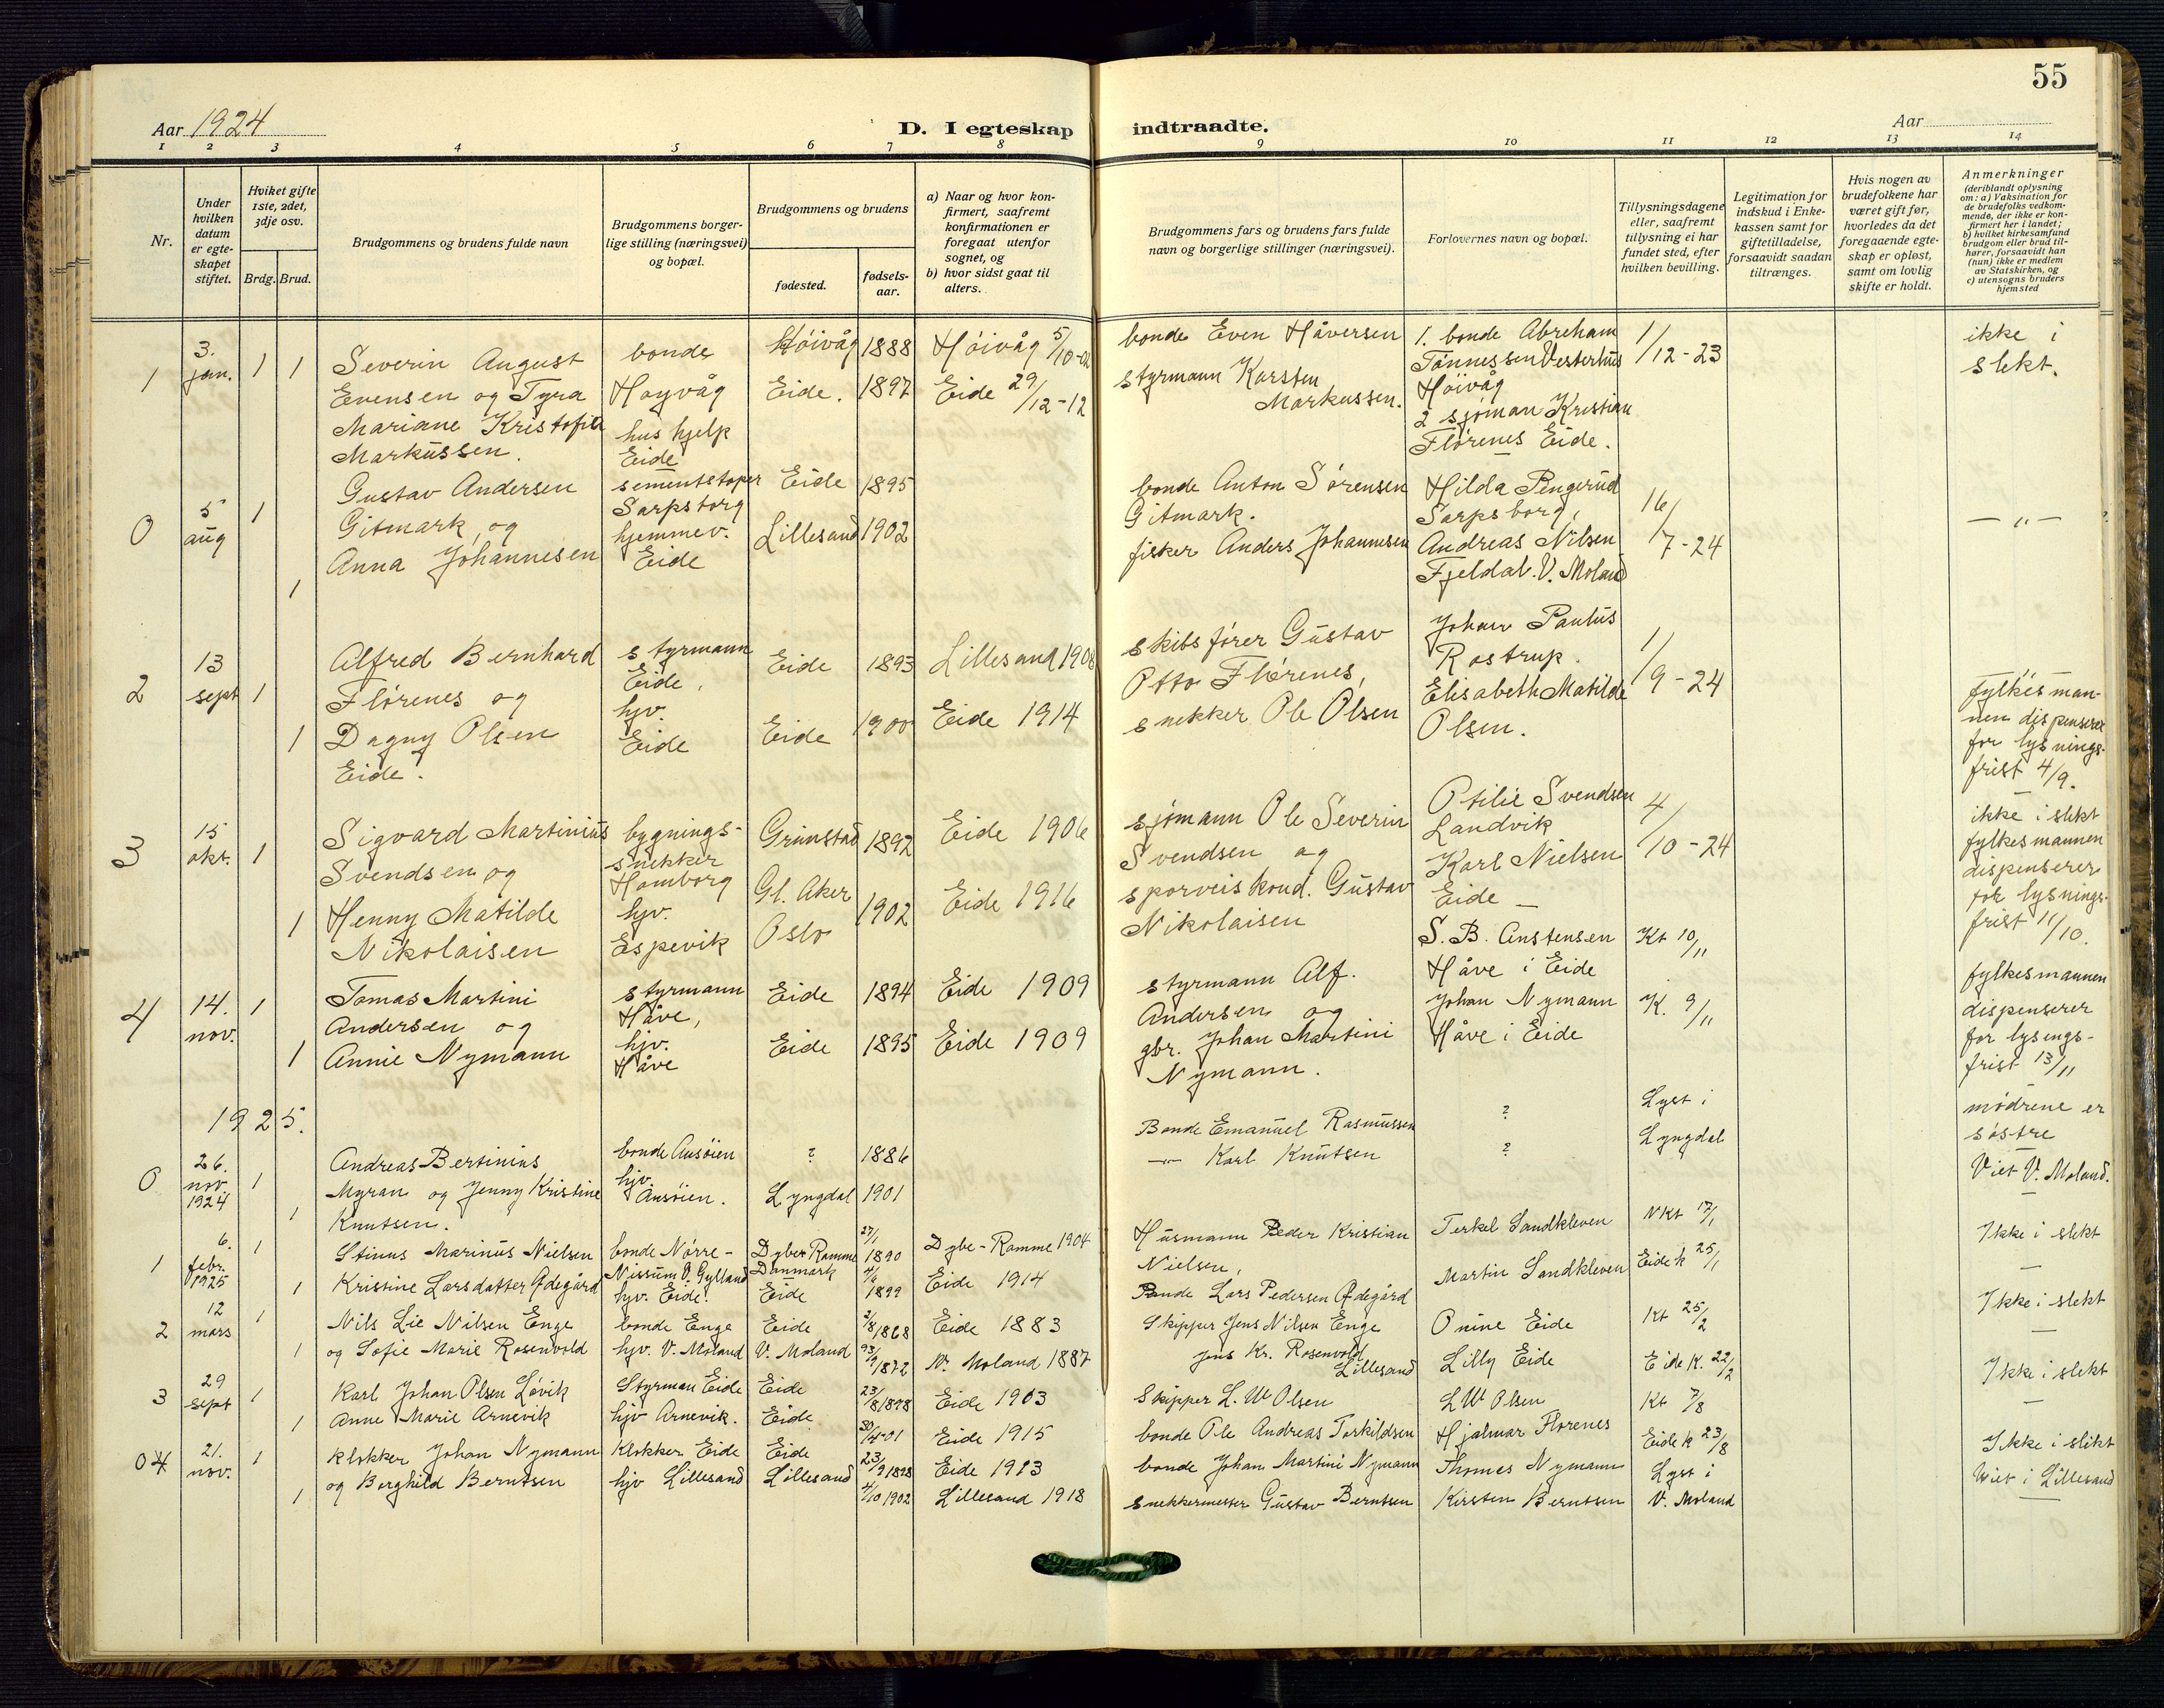 55
Aar 1924
D. I egteskap indtraadte.
Aar
1 2 3 4 5 6 7 8 9 10 11 12 13 14
Nr.
Under hvilken datum er egte-skapet stiftet.
Hviket gifte 1ste, 2det, 3dje osv.
Brdg. Brud.
Brudgommens og brudens fulde navn
Brudgommens borger-lige stilling (næringsvei) og bopæl.
Brudgommens og brudens
fødested.
fødsels-aar.
a) Naar og hvor kon-firmert, saafremt konfirmationen er foregaat utenfor sognet, og
b) hvor sidst gaat til alters.
Brudgommens fars og brudens fars fulde navn og borgerlige stillinger (næringsvei).
Forlovernes navn og bopæl.
Tillysningsdagene eller, saafremt tillysning ei har fundet sted, efter hvilken bevilling.
Legitimation for indskud i Enke-kassen samt for giftetilladelse, forsaavidt saadan tiltrænges.
Hvis nogen av brudefolkene har været gift før, hvorledes da det foregaaende egte-skap er opløst, samt om lovlig skifte er holdt.
Anmerkninger
(deriblandt oplysning om: a) Vaksination for de brudefolks vedkom-mende, der ikke er kon-firmert her i landet; b) hvilket kirkesamfund brudgom eller brud til-hører, forsaavidt han (hun) ikke er medlem av Statskirken, og c) utensogns bruders hjemsted
1 3. jan. 1 1 Severin August bonde Høivåg 1888 Høivåg 5/10-02 bonde Even Håversen 1. bonde Abreham 1/12-23 ikke i
Evensen og Tyra Høyvåg Eide. 1897 Eide 29/12-12 styrmann Karsten Tønnessen Vesterhus slekt.
Mariane Kristofie hus hjelp Markussen. Høivåg
Markussen. Eide 2 sjøman Kristian
Flørenes Eide.
0 5 aug 1 Gustav Andersen sementstøper Eide 1895 bonde Anton Sørensen Hilda Pengerud 16/7-24 — " —
Gitmark og Sarpsborg Gitmark. Sarpsborg,
1 Anna Johannesen hjemmev. Lillesand 1902 fisker Anders Johannesen Andreas Nilsen
Eide Fjeldal. V. Moland
2 13 sept 1 Alfred Bernhard styrmann Eide 1893 Lillesand 1908 skibsfører Gustav Johan Paulus 1/9-24
Flørenes og Eide, Otto Flørenes, Rostrup.
1 Dagny Olsen hjv. Eide 1900 Eide 1914 snekker Ole Olsen Elisabeth Matilde fylkesman-
Eide. Eide Olsen. nen dispenserer
for lysnings-
frist 4/9.
3 15 okt. 1 Sigvard Martinius bygnings- Grimstad 1892 Eide 1906 sjømann Ole Severin Otilie Svendsen 4/10-24 ikke i slekt
Svendsen og snekker Svendsen og Landvik fylkesmannen
1 Henny Matilde Homborg Gl. Aker 1902 Eide 1916 sporveiskond. Gustav Karl Nielsen dispenserer
Nikolaisen hjv. Oslo Nikolaisen Eide — for lysnings-
Espevik frist 11/10.
4 14. nov. 1 Tomas Martini styrmann Eide 1894 Eide 1909 styrmann Alf. S. B. Anstensen Kt 10/11 fylkesmannen
Andersen og Håve, Andersen og Håve i Eide dispenserer
1 Annie Nymann hjv. Eide 1895 Eide 1909 gbr. Johan Martini Johan Nymann K. 9/11 for lysings-
Håve Nymann. Håve i Eide frist 13/11
1925.
0 26. nov. 1924 1 Andreas Bertinius bonde Ansøien ? 1886 Bonde Emanuel Rasmussen ? Lyst i mødrene er
Myran og Jenny Kristine hjv. Ansøien. Lyngdal 1901 —"— Karl Knutsen ? Lyngdal søstre
1 Knutsen. Viet V. Moland.
1 6. febr. 1925 1 Stinus Marinus Nielsen bonde Nørre- Dybe Ramme 27/1 1890 Dybe-Ramme 1904 Husmann Peder Kristian Terkel Sandkleven Nkt 17/1 Ikke i slekt
Nissum V. Jylland Danmark Nielsen,
1 Kristine Larsdatter Ødegård hjv. Eide. Eide 4/6 1899 Eide 1914 Bonde Lars Pedersen Ødegård Martin Sandkleven Eide k 25/1
2 12 mars 1 Nils Lie Nilsen Enge bonde Enge Eide 2/8 1868 Eide 1883 Skipper Jens Nilsen Enge Onine Eide Kt 25/2 Ikke i slekt
1 og Sofie Marie Rosenvold hjv. V. Moland V. Moland 1872 V. Moland 1887 Jens Kr. Rosenvold Lillesand Lilly Eide Eide K. 22/2
3 29 sept 1 Karl Johan Olsen Løvik Styrman Eide Eide 23/8 1898 Eide 1903 Skipper L. W Olsen L W Olsen Kt 7/8 Ikke i slekt
1 Anne Marie Arnevik hjv Arnevik. Eide 30/4-01 Eide 1915 bonde Ole Andreas Torkildsen Hjalmar Florenes Eide k 23/8
04 21. nov. 1 Klokker Johan Nymann Klokker Eide Eide 23/9 1898 Eide 1913 bonde Johan Martini Nymann Thomes Nymann Lyst i Ikke i slekt
1 og Borghild Berntsen hjv Lillesand Lillesand 4/10 1902 Lillesand 1918 snekkermester Gustav Berntsen Kirsten Berntsen V. Moland Viet i Lillesand